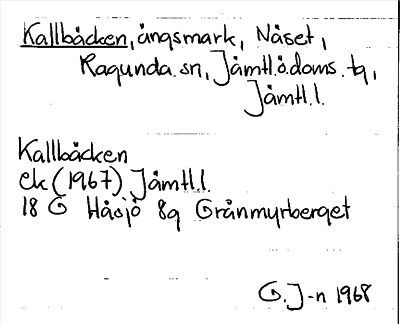 Kallbäcken, ängsmark, Näset,
Ragunda sn, Jämtl.ö.doms. tg,
Jämtl.l.
Kallbäcken
ek (1967) Jämtl.l.
18 G Håsjö 8g Grånmyrberget
G. J-n 1968